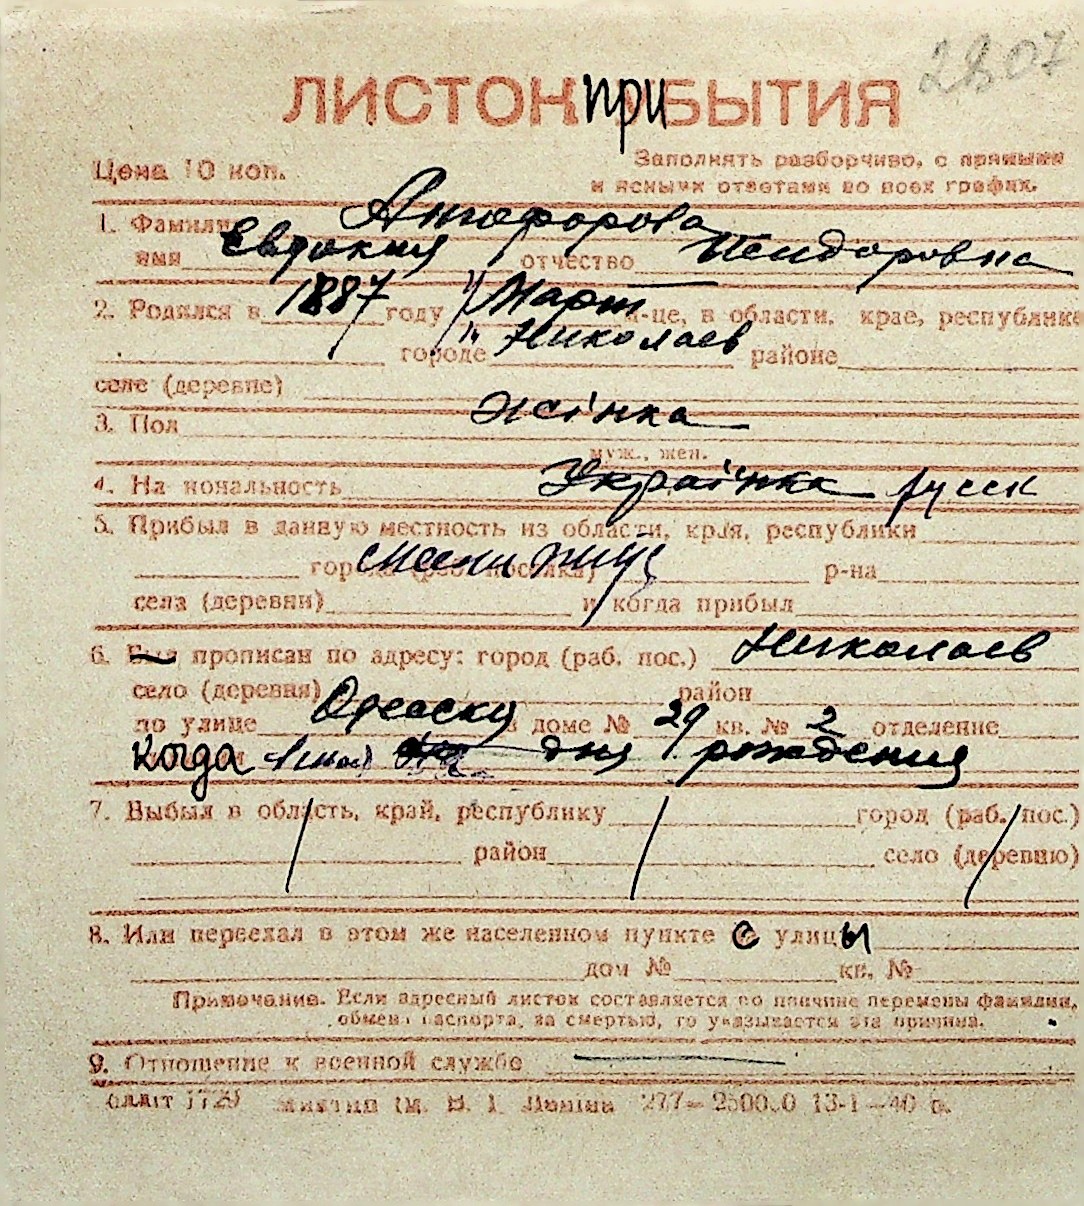 2807
ЛИСТОК ПРИБЫТИЯ
Цена 10 коп.
Заполнять разборчиво, с прямыми
и ясными ответами во всех графах.
1. Фамилия Анофорова
имя Евдокия отчество Исидоровна
2. Родился в 1887 году " Март " м-це, в области, крае, республике
городе Николаев районе
селе (деревне)
3. Пол жінка
муж., жен.
4. Национальность Українка русск
5. Прибыл в данную местность из области, края, республики
города (раб. поселка) р-на
села (деревни) и когда прибыл
6. Был прописан по адресу: город (раб. пос.) Николаев
село (деревня) район
по улице Одесску в доме № 29 кв. № 2 отделение
Когда дня рождения
7. Выбыл в область, край, республику город (раб. пос.)
район село (деревню)
8. Или переехал в этом же населенном пункте с улицы
дом № кв. №
Примечание. Если адресный листок составляется по причине перемены фамилии,
обмена паспорта, за смертью, то указывается эта причина.
9. Отношение к военной службе
им. В. І. Леніна 277— 13-1—40 р.